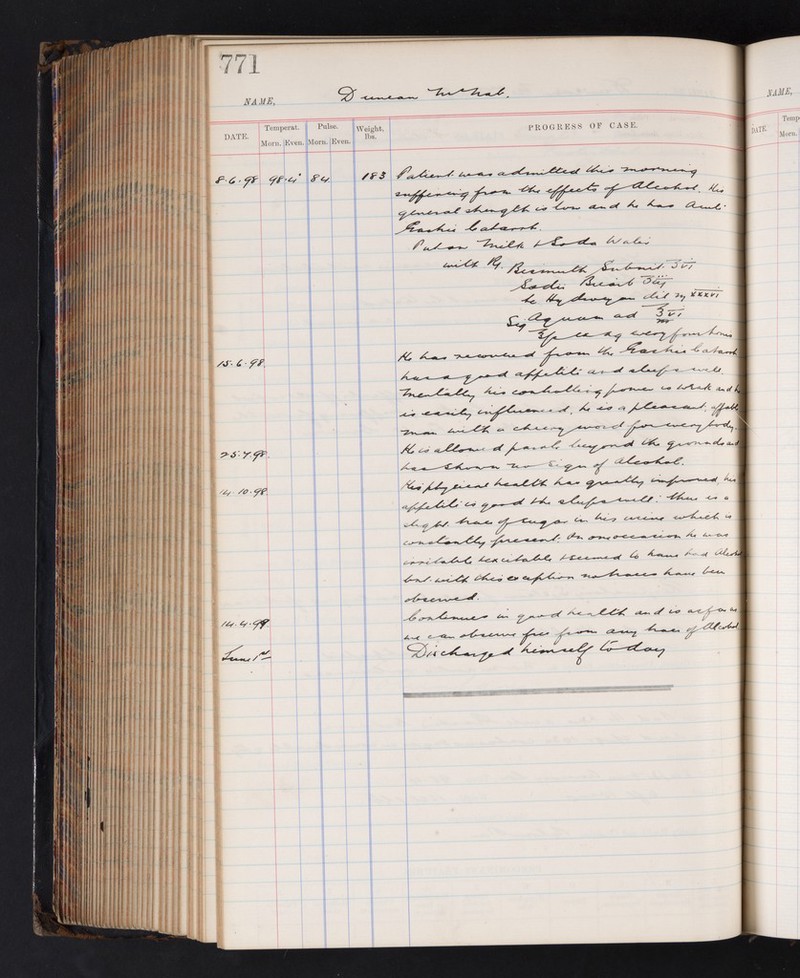 771
NAME, Duncan McNab.
DATE. Temperat. Pulse. Weight, lbs. PROGRESS OF CASE.
Morn. Even. Morn. Even.
8·6·98 98·4° 84 183 Patient was admitted this morning
suffering from the effects of Alcohol. His
general strength is low and he has Acute
Gastric Catarrh.
Put on Milk & Soda Water
with Rx. Bismuth Subnit. ʒvi
Sodii Bicarb ʒiij
Ac Hydrocyan dil ♏ xxxvi
Aquam ad ℥vi
Sig ℥ss ex aq every four hours
15·6·98 He has recovered from the Gastric Catarrh
has a good appetite and sleeps well.
Mentally his controlling power is weak and he
is easily influenced, he is a pleasant, affable
man with a cheery word for everybody.
25·7·98 He is allowed parole beyond the grounds and
has shown no sign of Alcohol.
14·10·98 His physical health has greatly improved, his
appetite is good & he sleeps well: there is a
slight trace of sugar in his urine which is
constantly present. On one occasion he was
irritable & excitable & seemed to have had Alcohol
but with this exception no traces have been
observed.
14·4·99 Continues in good health and is as far as
we can observe free from any trace of Alcohol
June 1st Discharged himself to-day
NAME,
DATE. Temp
Morn.